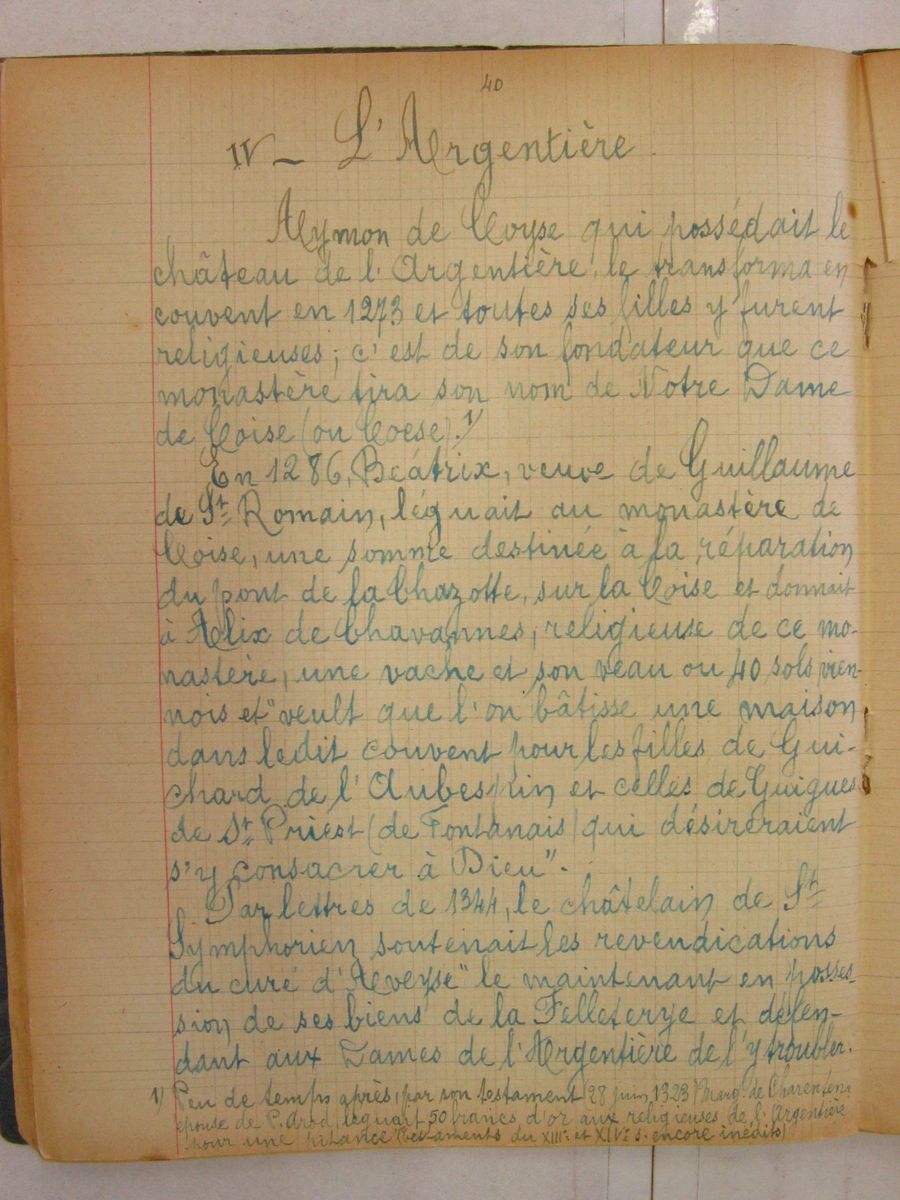 40
IV – L'Argentière.
Aymon de Coyse qui possédait le
château de l'Argentière, le transforma en
couvent en 1273 et toutes ses filles y furent
religieuses; c'est de son fondateur que ce
monastère tira son nom de Notre Dame
de Coise (ou Coese). 1/
En 1286, Béatrix, veuve de Guillaume
de St Romain, léguait au monastère de
Coise, une somme destinée à la réparation
du pont de la Chazotte, sur la Coise et donnait
à Alix de Chavannes, religieuse de ce mo-
nastère, une vache et son veau ou 40 sols vien-
nois et "veult que l'on bâtisse une maison
dans ledit couvent pour les filles de Gui-
chard de l'Aubespin et celles de Guigues
de St Priest (de Fontanais) qui désireraient
s'y consacrer à Dieu".
Par lettres de 1344, le châtelain de St
Symphorien soutenait les revendications
du curé d'Aveyse "le maintenant en posses-
sion de ses biens de la Felleterye et défen-
dant aux Dames de l'Argentière de l'y troubler.
1) Peu de temps après, par son testament 28 juin 1323 Marg. de
épouse de P. Arod, léguait 50 francs d'or aux religieuses de l'Argentière
pour une pitance (Testaments du XIIIe et XIVe s. encore inédits)